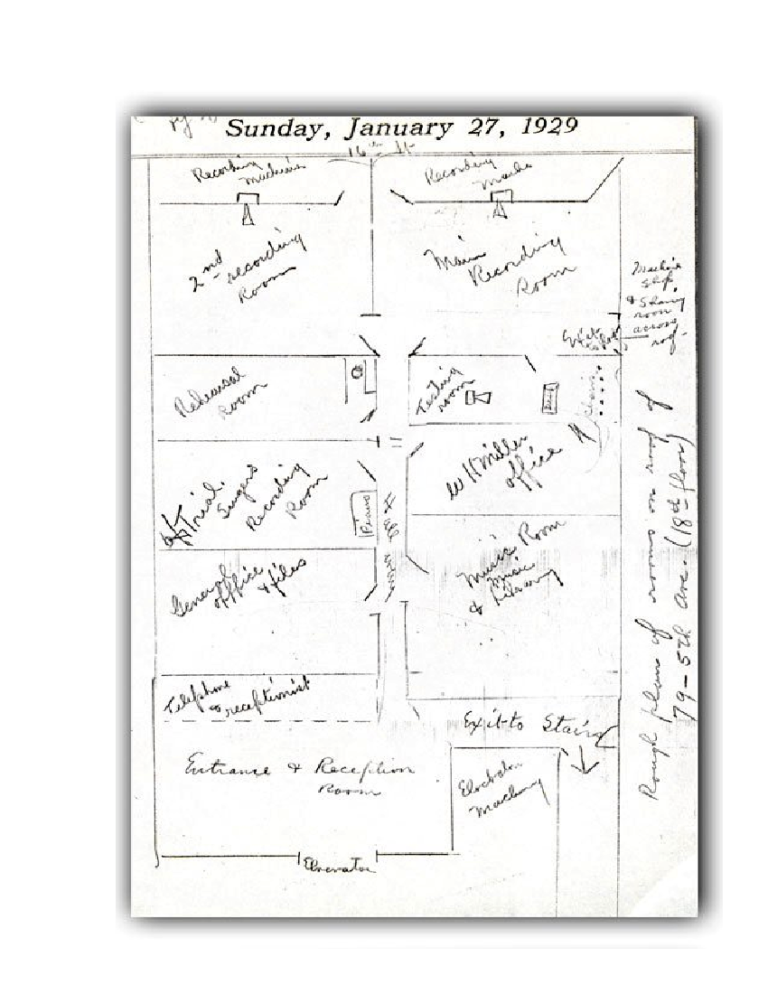 Sunday, January 27, 1929
16th St
Recording
Machine
Recording
2nd recording
Room
Main
Recording
Room
Machine
Shop
& Shaving
room
across
roof.
Exit
Rehearsal
Room
Testing
room
Desk
Chairs
W H Miller
office
Trial
Singers
Recording
Room
Piano
Music Room
Music
& Library
General
office
& files
Telephone
& receptionist
Exit to Stairs
Entrance & Reception
Room
Machinery
Elevator
Rough plans of rooms on roof of
79-5th Ave. (18th floor)